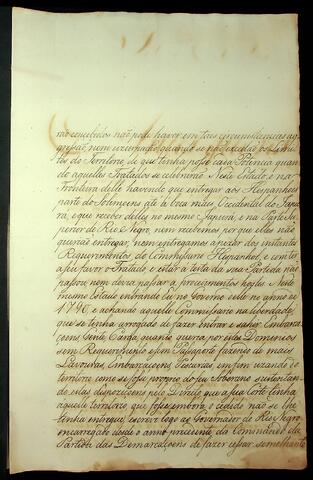 rão concebidos não pode haver em taes circumstancias ag
gressaõ, nem uzurpação, quando se não excedão os Limi
tes do Territorio, de que tenha posse cada Potencia quan
do aquelles Tratados se celebrarão. Neste Estado e na
Fronteira delle havendo que entregar aos Hespanhoes
parte do Solimoens até à boca mais Occidental do Japu
rá, e que receber delles no mesmo Japurá, e na Parte Su
perior do Rio Negro, nem recebemos por que elles não
quizerão entregar, nem entregamos apezar dos instantes
Requerimentos do Commissario Hespanhol, e com ter
a seu favor o Tratado, e estar a testa da sua Partida não
passou nem devia passar a procedimentos hostis. Neste
mesmo Estado entrando eu no Governo delle no anno de
1790, e achando aquelle Commissario na liberdade,
que se tinha arrogado de fazer entrar e sahir Embarca
çoens, Gente, Carga, quando queria por estes Dominios
sem Requerimento e sem Passaporte fazendo de mais
Lavouras, Embarcaçoens, Pescarias, em fim uzando do
territorio como se fosse proprio do seu Soberano sustentan
do estas dispoziçoens pelo Direito que a sua Corte tinha
aquelle territorio que posto embora o cedido não se lhe
tinha entregue, escrevi logo ao Governador do Rio Negro
encarregado desde o anno precedente do Commando da
Partida das Demarcaçoens de fazer cessar semelhante